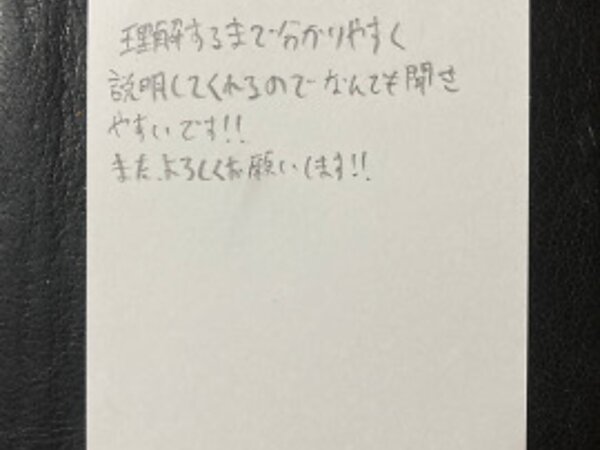 理解するまで分かりやすく
説明してくれるのでなんでも聞き
やすいです!!
またよろしくお願いします!!